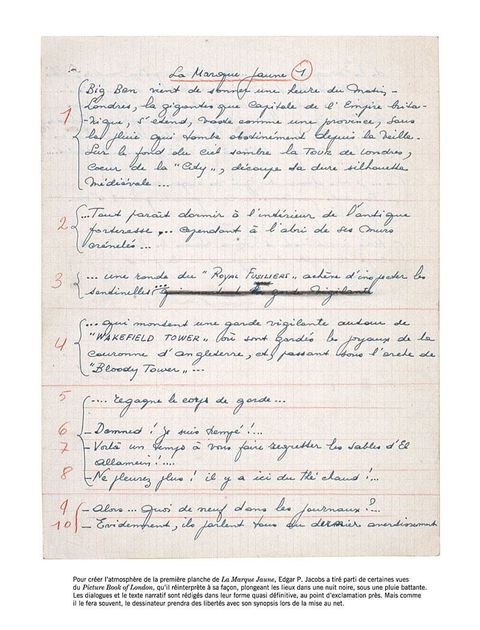 La Marque Jaune 1
1 Big Ben vient de sonner une heure du matin,-
Londres, la gigantesque capitale de l'Empire brita-
nique, s'étend, vaste comme une province, sous
la pluie qui tombe obstinément depuis la veille.
Sur le fond du ciel sombre la Tour de Londres,
coeur de la "City", découpe sa dure silhouette
médiévale ...
2 ...Tout paraît dormir à l'intérieur de l'antique
forteresse ... cependant à l'abri de ses murs
crénelés ...
3 ... une ronde du "ROYAL FUSILIERS" achève d'inspecter les
sentinelles
4 ... qui montent une garde vigilante autour de
"WAKEFIELD TOWER" où sont gardés les joyaux de la
couronne d'Angleterre, et, passant sous l'arche de
"Bloody Tower"...
5 .... regagne le corps de garde...
6 - Damned ! je suis trempé !...
7 - Voilà un temps à vous faire regretter les sables d'El
Allamein !....
8 - Ne pleurez plus ! il y a ici du thé chaud !...
9 - Alors... Quoi de neuf dans les journaux ?...
10 - Evidemment, ils parlent tous du dernier avertissement
Pour créer l'atmosphère de la première planche de La Marque Jaune, Edgar P. Jacobs a tiré parti de certaines vues
du Picture Book of London, qu'il réinterprète à sa façon, plongeant les lieux dans une nuit noire, sous une pluie battante.
Les dialogues et le texte narratif sont rédigés dans leur forme quasi définitive, au point d'exclamation près. Mais comme
il le fera souvent, le dessinateur prendra des libertés avec son synopsis lors de la mise au net.